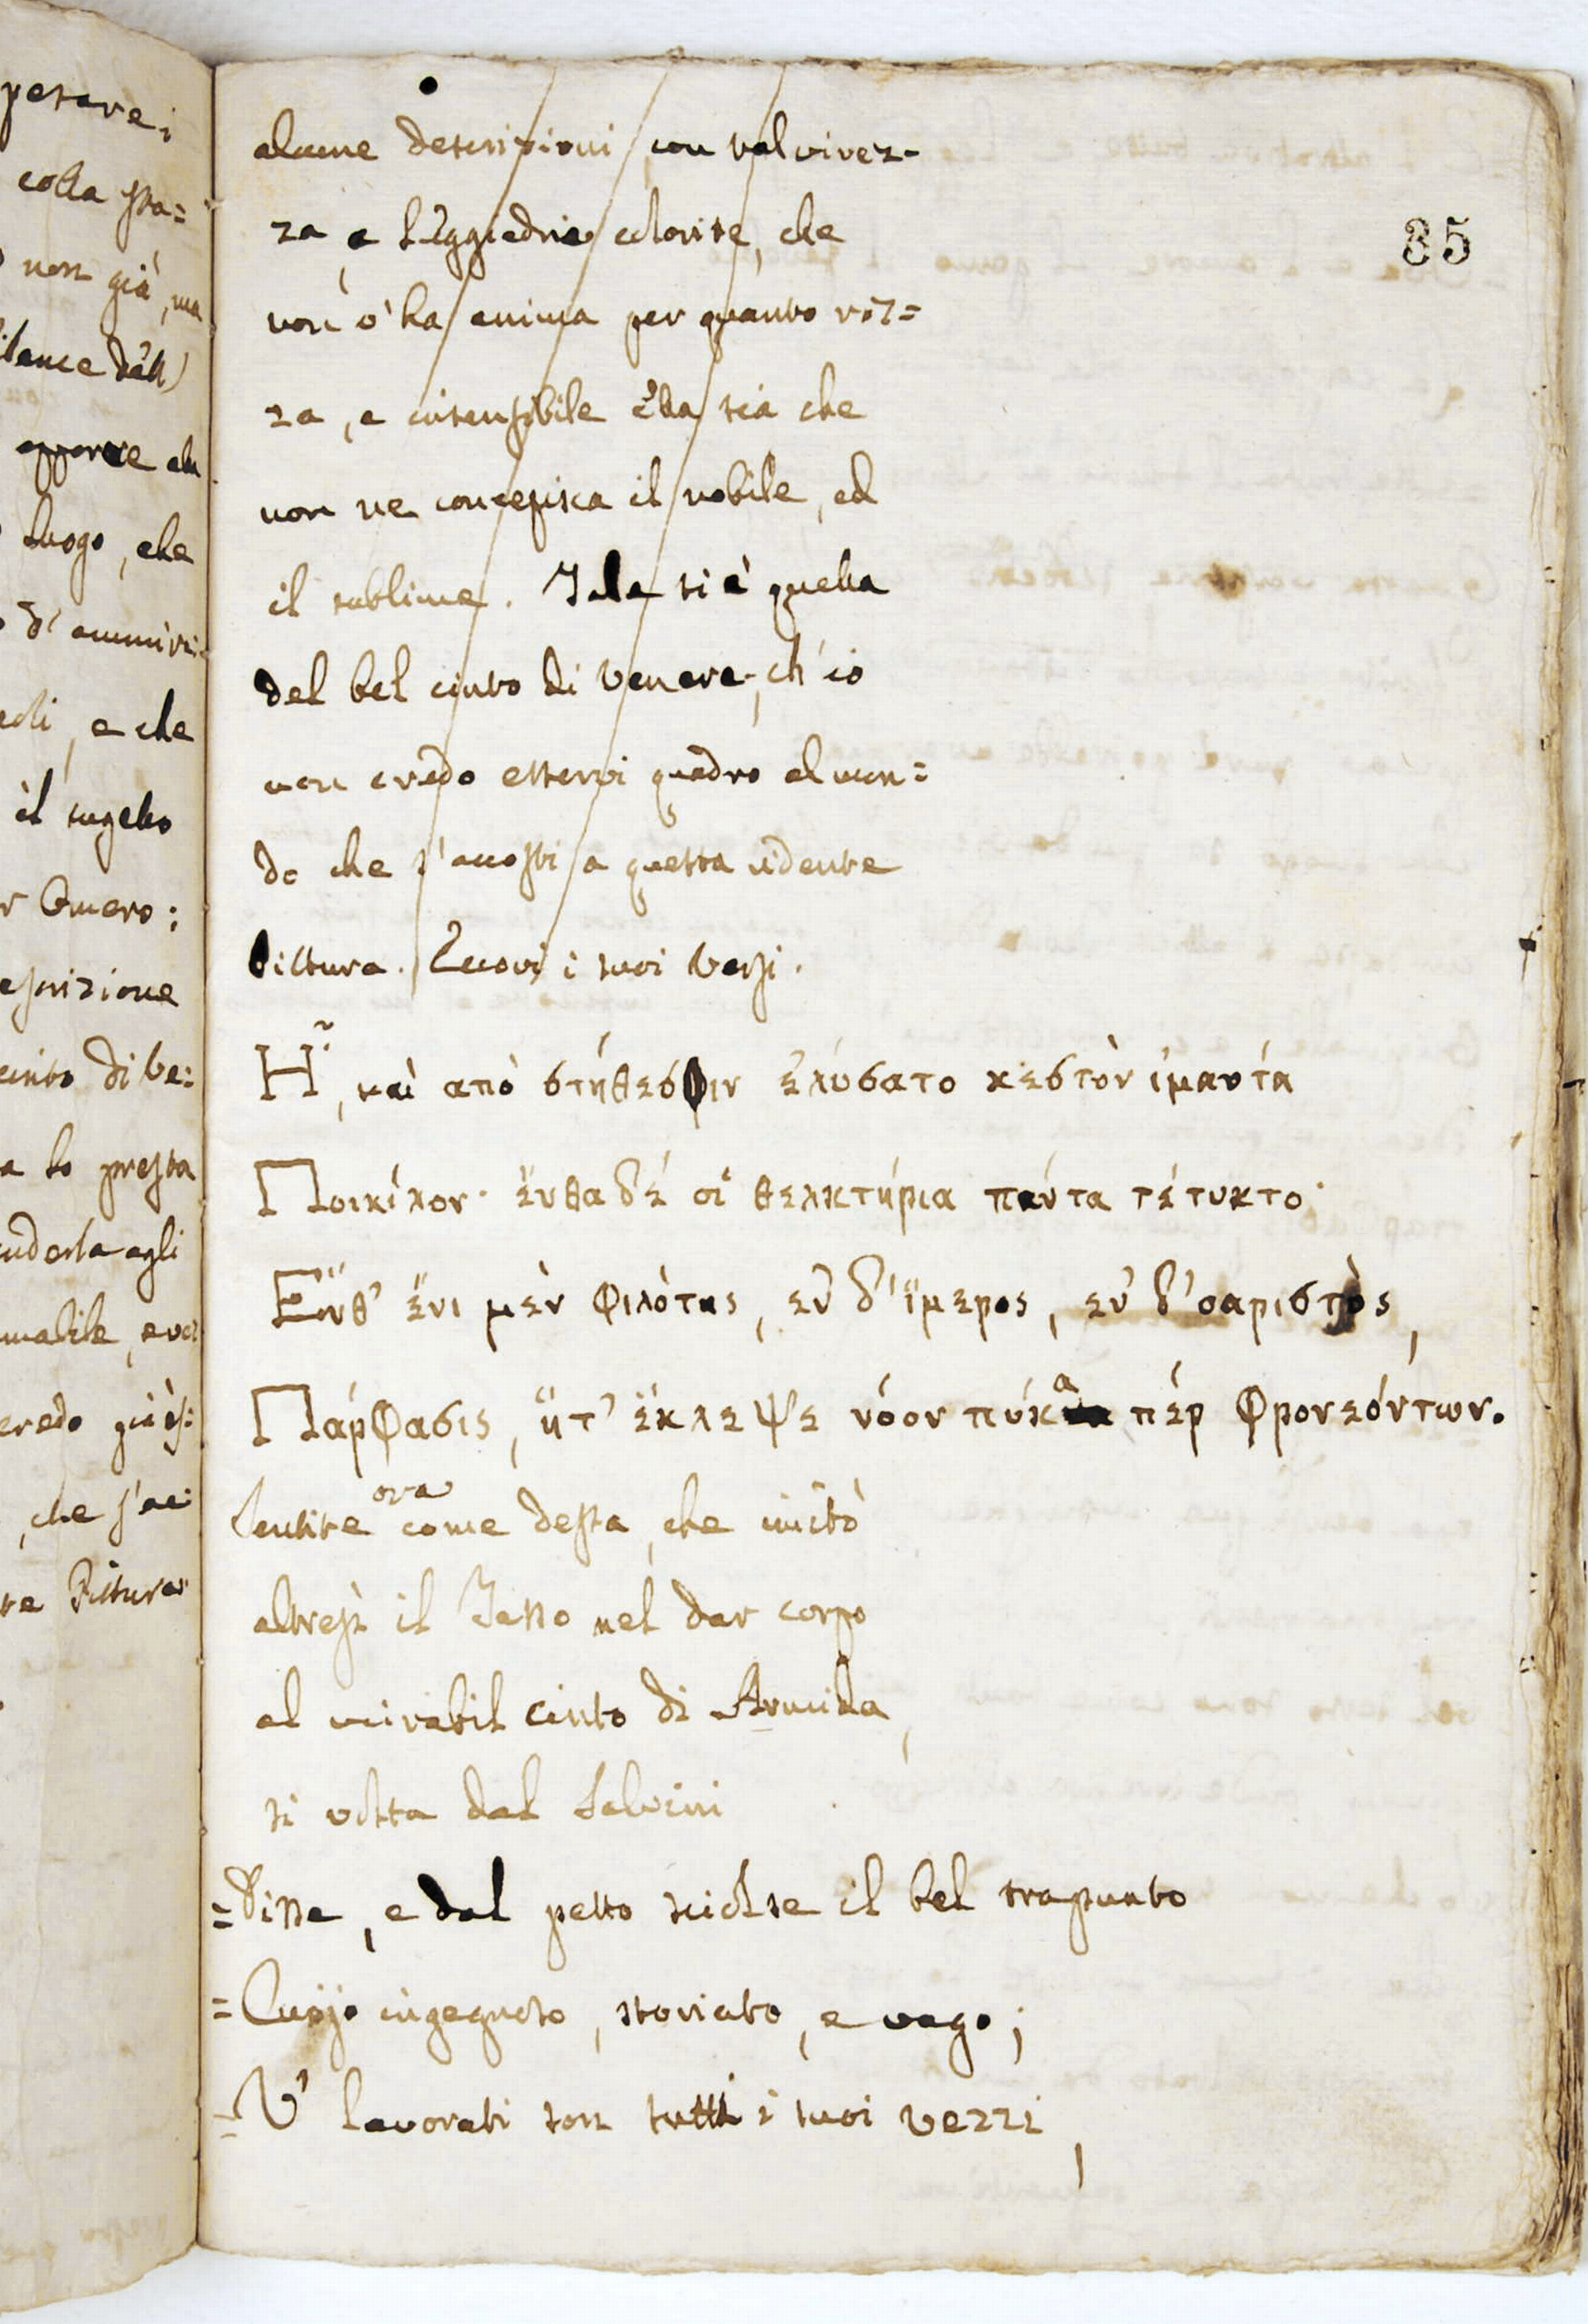 petare i
colla sta=
non già, ma
opporre alcu
luogo, che
d'ammiri
e che
il sugetto
r Omero:
escrizione
cinto di Ve=
a lo presta
amabile, e ve
credo già es=
, che s'ac
te Pitture
35
alcune descrizioni con tal vivez-
za, e leggiadria colorite, che
non v'ha anima per quanto roz=
za, e insensibile ella sia che
non ne concepisca il nobile, ed
il sublime. Tale si è quella
del bel cinto di Venere, ch'io
non credo esservi quadro al mon=
do che s'accosti a questa ridente
Pittura. Eccovi i suoi versi.
Η῏, καὶ ἀπὸ στήθεσφιν ἐλύσατο κεστὸν ἱμαντά
Ποικίλον· ἔνθα δέ οἱ θελκτήρια πάντα τέτυκτο·
Ἔνθ' ἔνι μὲν φιλότης, ἐν δ' ἵμερος, ἐν δ' οαριστὺς,
Πάρφασις, ἥτ' ἔκλεψε νόον πύκα πέρ φρονεόντων.
Sentite ora come desta, che imitò
altresì il Tasso nel dar corpo
al mirabil cinto di Armida,
si volta dal Salvini
=Disse, e dal petto sciolse il bel trapunto
=Cuojo ingegnoso, storiato, e vago;
=V' lavorati son tutti i suoi vezzi,